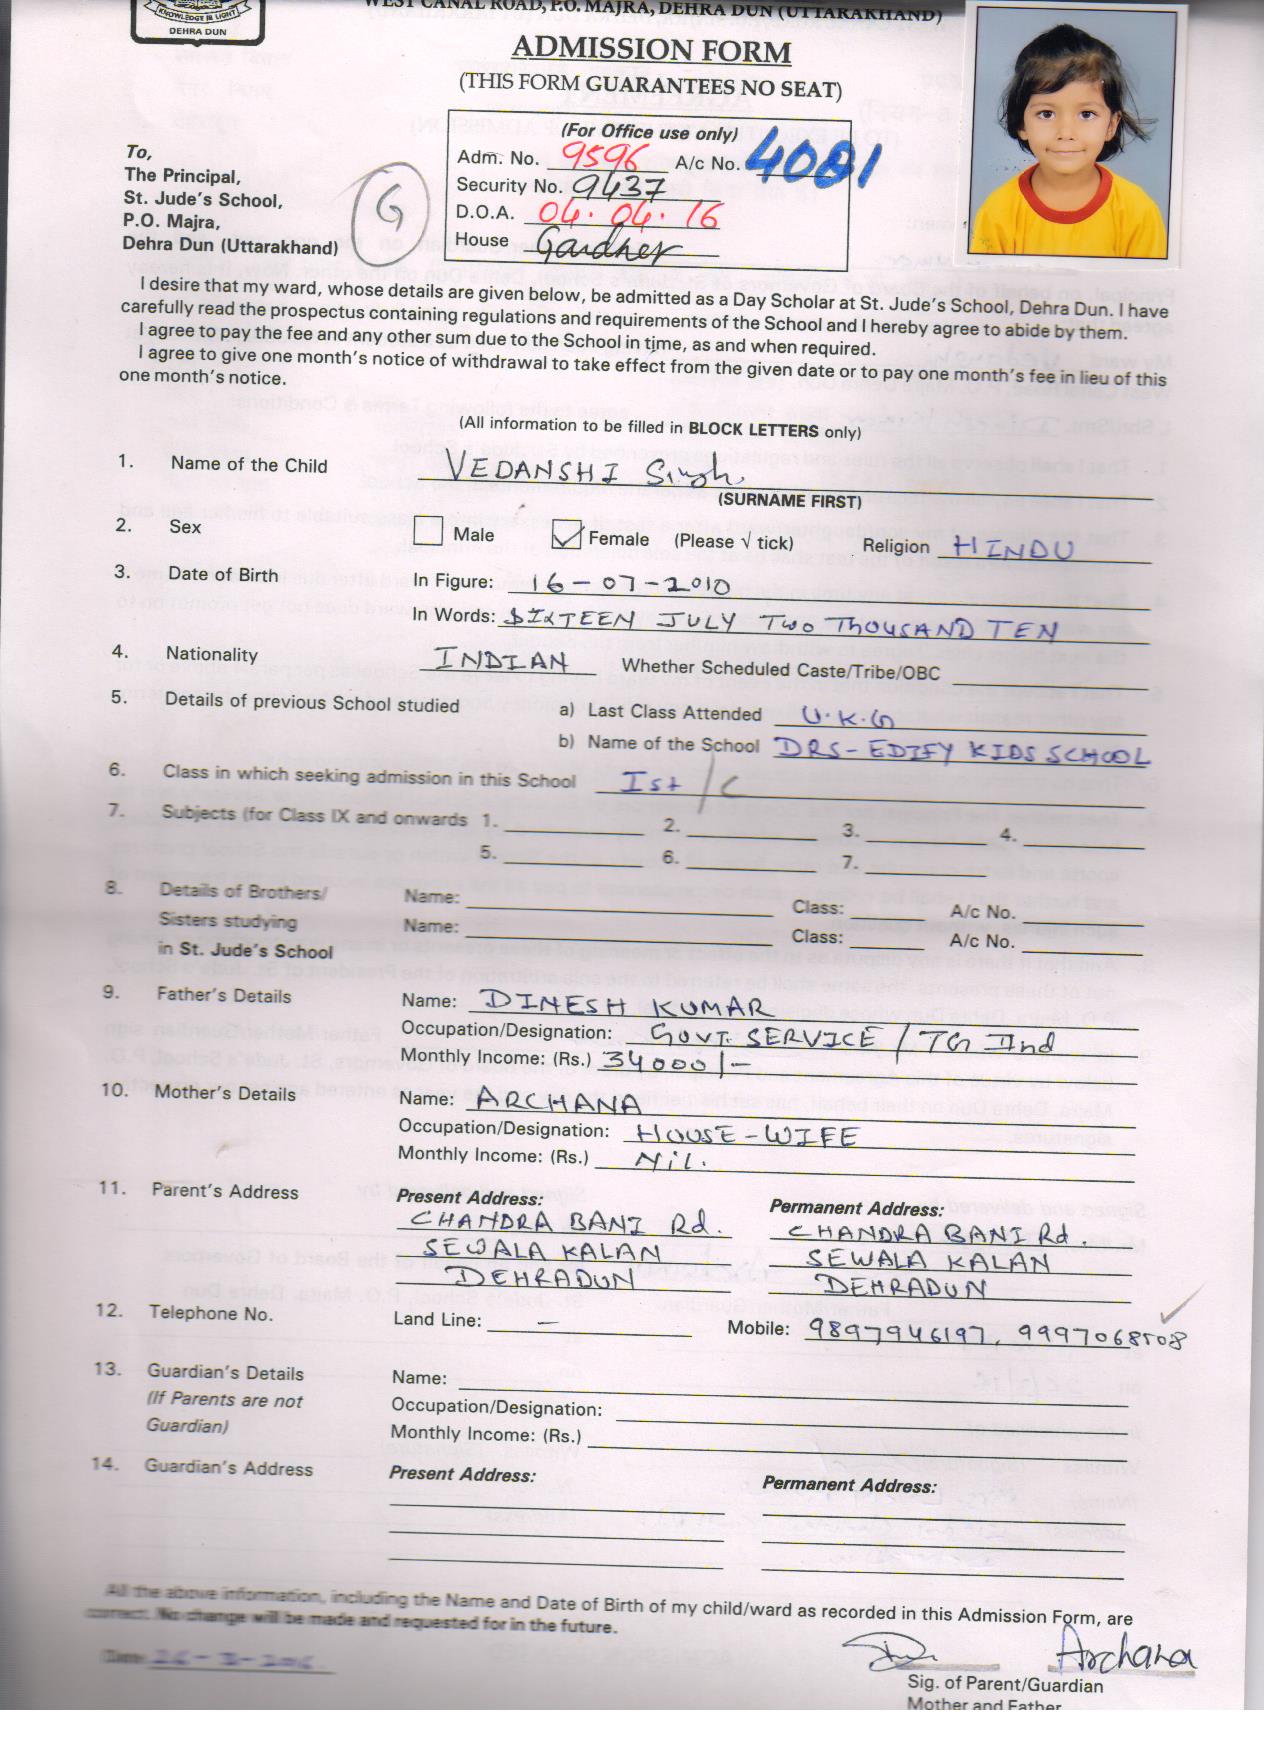 KNOWLEDGE IS LIGHT
DEHRA DUN
WEST CANAL ROAD, P.O. MAJRA, DEHRA DUN (UTTARAKHAND)
ADMISSION FORM
(THIS FORM GUARANTEES NO SEAT)
(For Office use only)
Adm. No. 9596 A/c No. 4081
Security No. 9437
D.O.A. 04.04.16
House Gardner
G
To,
The Principal,
St. Jude's School,
P.O. Majra,
Dehra Dun (Uttarakhand)
I desire that my ward, whose details are given below, be admitted as a Day Scholar at St. Jude's School, Dehra Dun. I have
carefully read the prospectus containing regulations and requirements of the School and I hereby agree to abide by them.
I agree to pay the fee and any other sum due to the School in time, as and when required.
I agree to give one month's notice of withdrawal to take effect from the given date or to pay one month's fee in lieu of this
one month's notice.
(All information to be filled in BLOCK LETTERS only)
1. Name of the Child VEDANSHI Singh
(SURNAME FIRST)
2. Sex Male Female (Please √ tick) Religion HINDU
3. Date of Birth In Figure: 16-07-2010
In Words: SIXTEEN JULY TWO THOUSAND TEN
4. Nationality INDIAN Whether Scheduled Caste/Tribe/OBC
5. Details of previous School studied a) Last Class Attended U.K.G
b) Name of the School DRS-EDIFY KIDS SCHOOL
6. Class in which seeking admission in this School Ist /C
7. Subjects (for Class IX and onwards 1. 2. 3. 4.
5. 6. 7.
8. Details of Brothers/ Name: Class: A/c No.
Sisters studying Name: Class: A/c No.
in St. Jude's School
9. Father's Details Name: DINESH KUMAR
Occupation/Designation: GOVT. SERVICE / TG IInd
Monthly Income: (Rs.) 34000/-
10. Mother's Details Name: ARCHANA
Occupation/Designation: HOUSE-WIFE
Monthly Income: (Rs.) Nil.
11. Parent's Address Present Address: Permanent Address:
CHANDRA BANI Rd. CHANDRA BANI Rd.
SEWALA KALAN SEWALA KALAN
DEHRADUN DEHRADUN
12. Telephone No. Land Line: - Mobile: 9897946197, 9997068508
13. Guardian's Details Name:
(If Parents are not Occupation/Designation:
Guardian) Monthly Income: (Rs.)
14. Guardian's Address Present Address: Permanent Address:
All the above information, including the Name and Date of Birth of my child/ward as recorded in this Admission Form, are
correct. No change will be made and requested for in the future.
Date:
Archana
Sig. of Parent/Guardian
Mother and Father